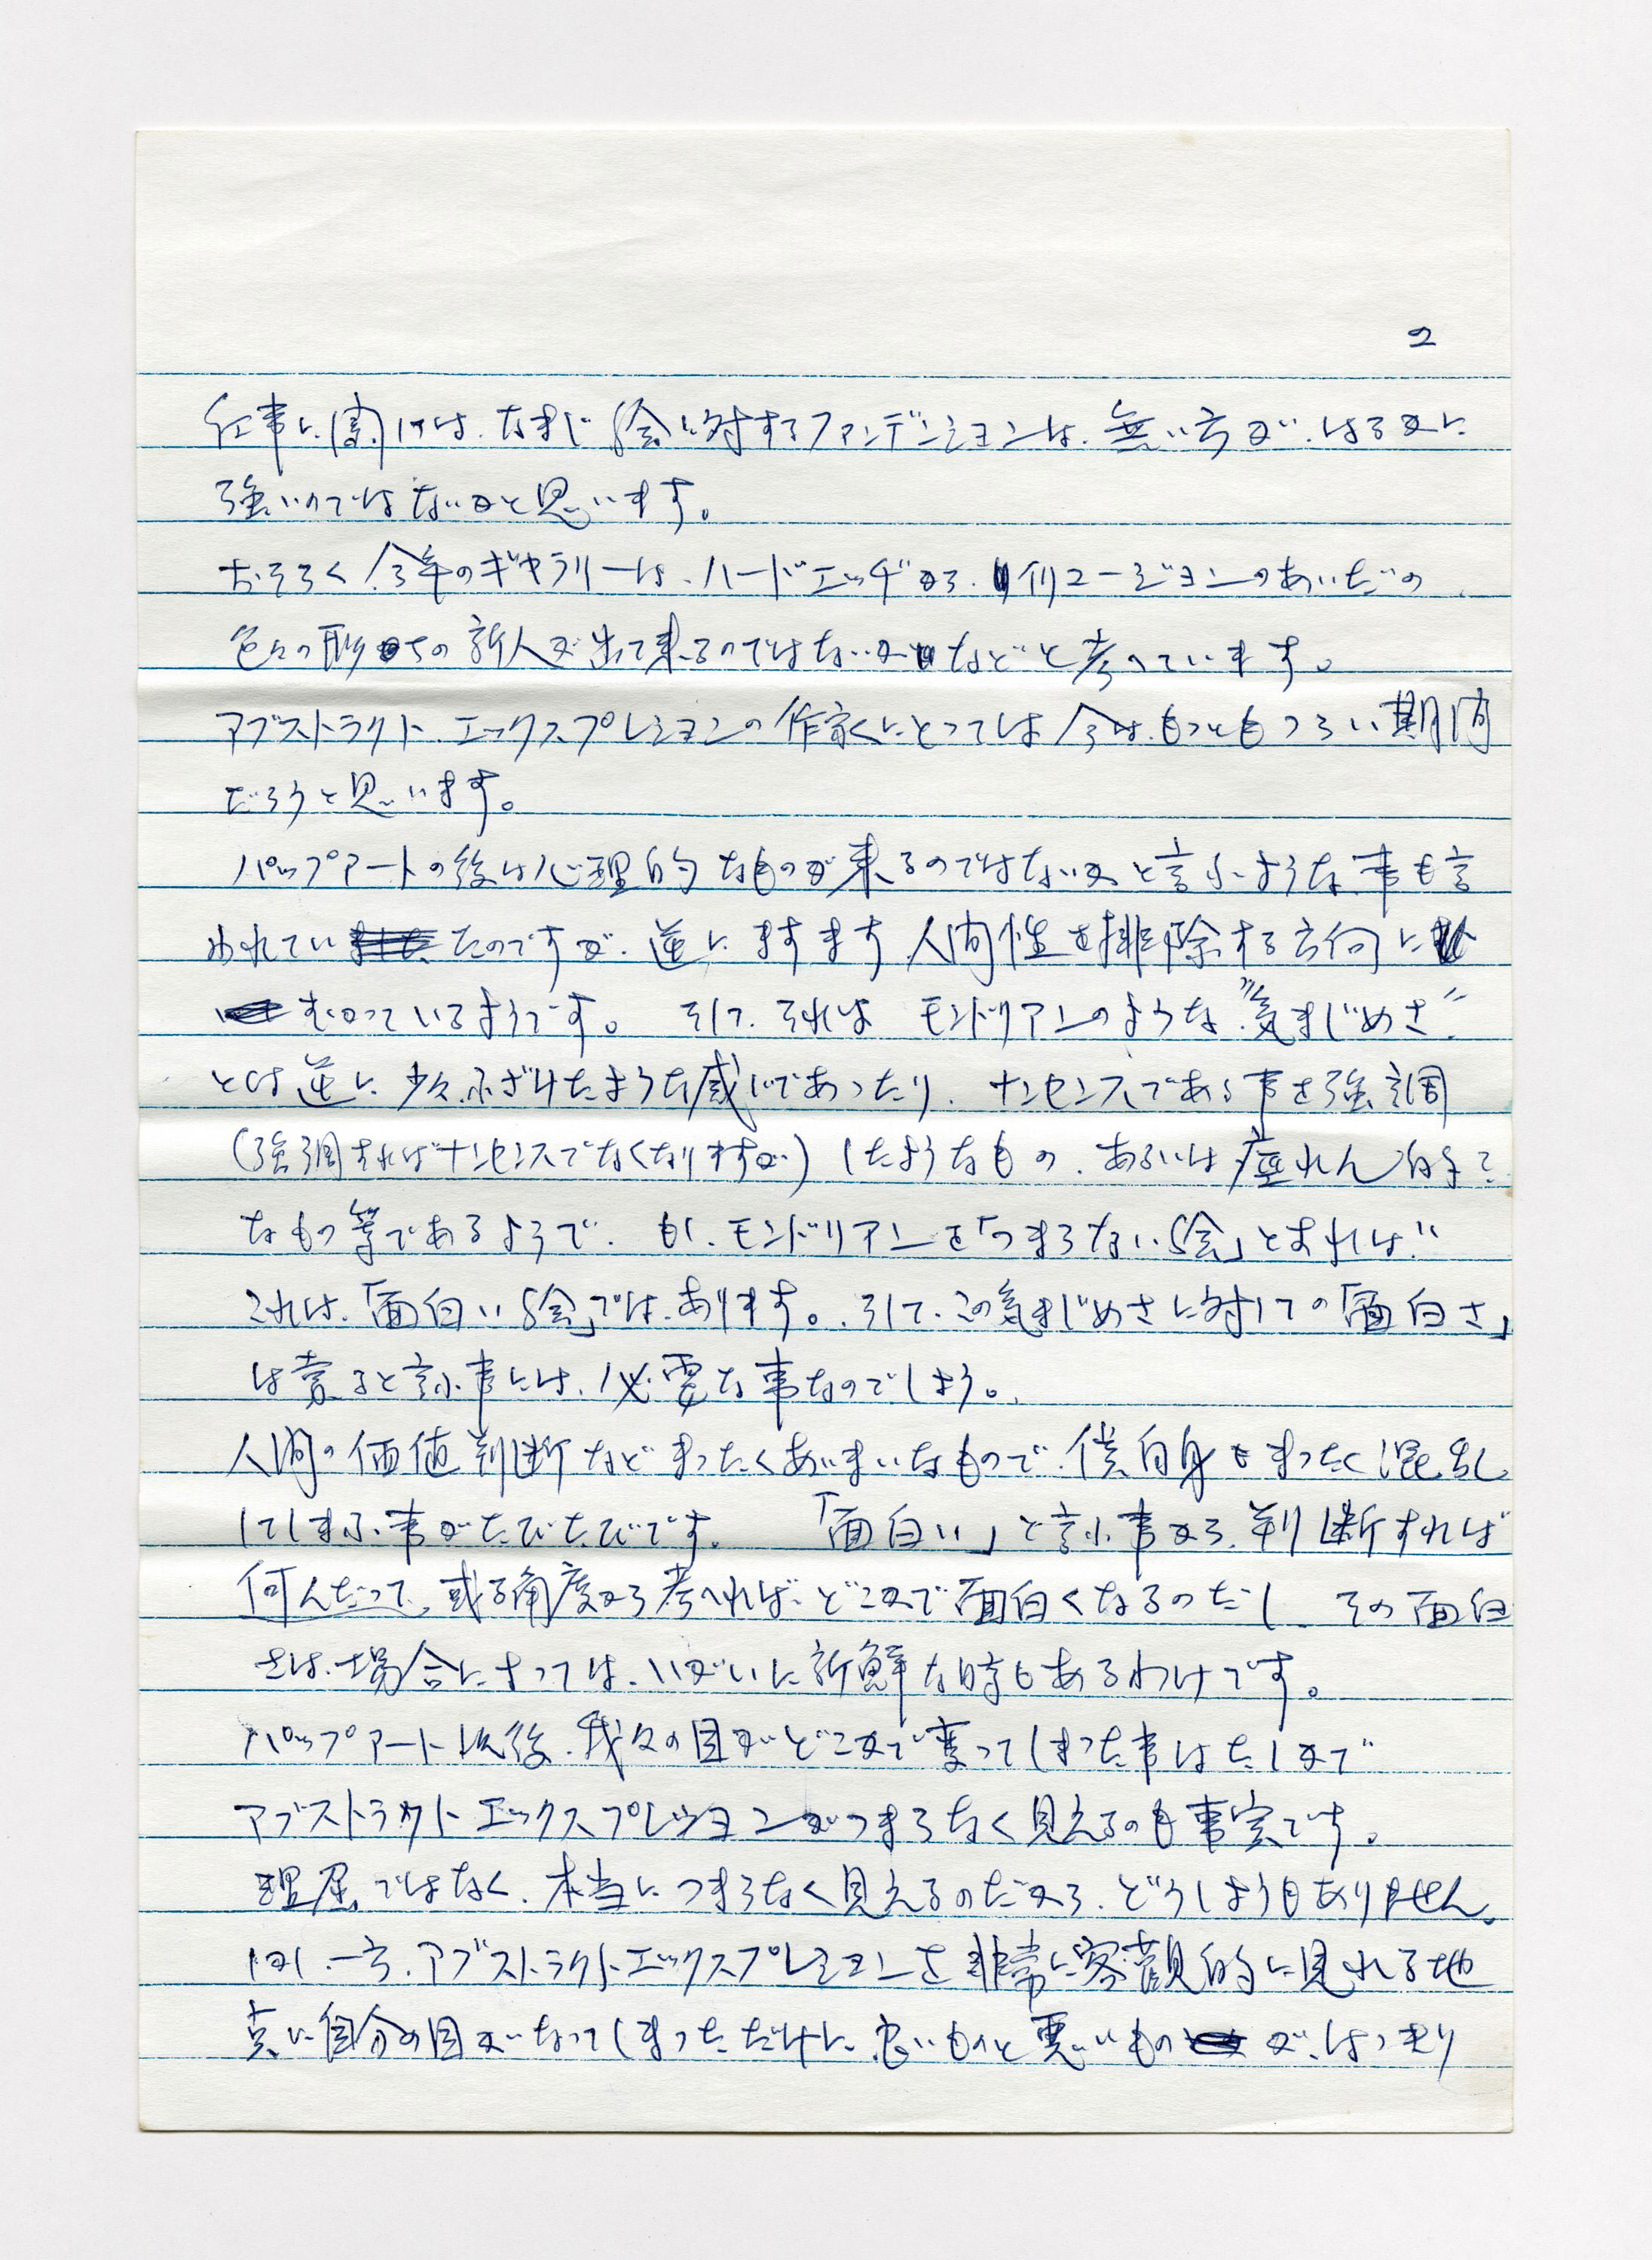 2
仕事に関しては、なまじ絵に対するファンデーションは、無い方が、はるかに
強いのではないかと思います。
おそらく今年のギャラリーは、ハードエッヂから、イリュージョンのあいだの
色々の形の新人が出て来るのではないかなどと考へています。
アブストラクト エックスプレションの作家にとっては今はもっともつらい期間
だろうと思います。
パップアートの後は心理的なものが来るのではないかと言ふような事も言
われていたのですが、逆に ますます 人間性を排除する方向に
むかっているようです。 そして、それは モンドリアンのような、"気まじめさ"
とは逆に、少々ふざけたような感じであったり、ナンセンスである事を強調
(強調すればナンセンスでなくなりますが)したようなもの、あるいは痙れん的?
なもの等であるようで、もし、モンドリアンを「つまらない絵」とすれば、
これは、「面白い絵」では、あります。そして、この気まじめさに対しての「面白さ」
は売ると言ふ事には、必要な事なのでしょう。
人間の価値判断などまったくあいまいなもので、僕自身もまったく混乱
してしまふ事がたびたびです。 「面白い」と言ふ事から、判断すれば
何んだって、或る角度から考へれば、どこかで面白くなるのだし その面白
さは、場合によっては、いがいに新鮮な時もあるわけです。
パップアート以後、我々の目がどこかで変ってしまった事はたしかで
アブストラクトエックスプレッションがつまらなく見えるのも事実です。
理屈ではなく、本当につまらなく見えるのだから、どうしようもありません。
しかし、一方、アブストラクトエックスプレションを非常に客観的に見れる地
点に自分の目がなってしまっただけに、良いものと悪いものが、はっきり